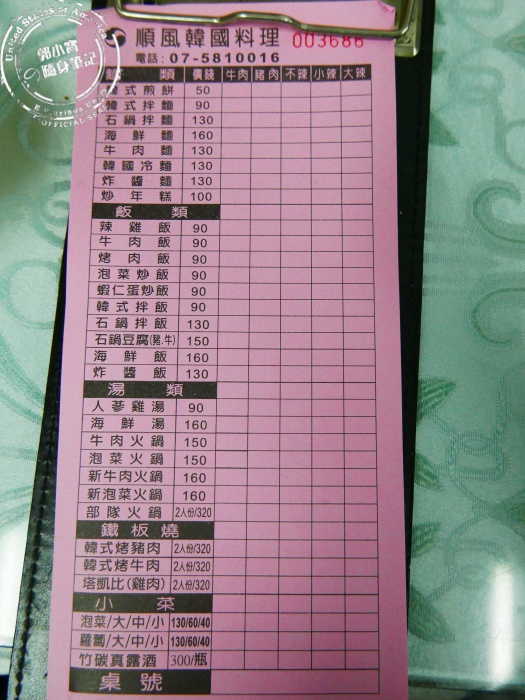 郭小寶
隨身筆記
順風韓國料理 003686
電話：07-5810016
麵 類 價錢 牛肉 豬肉 不辣 小辣 大辣
韓式煎餅 50
韓式拌麵 90
石鍋拌麵 130
海鮮麵 160
牛肉麵 130
韓國冷麵 130
炸醬麵 130
炒年糕 100
飯類
辣雞飯 90
牛肉飯 90
烤肉飯 90
泡菜炒飯 90
蝦仁蛋炒飯 90
韓式拌飯 90
石鍋拌飯 130
石鍋豆腐(豬.牛) 150
海鮮飯 160
炸醬飯 130
湯類
人蔘雞湯 90
海鮮湯 160
牛肉火鍋 150
泡菜火鍋 150
新牛肉火鍋 160
新泡菜火鍋 160
部隊火鍋 2人份/320
鐵板燒
韓式烤豬肉 2人份/320
韓式烤牛肉 2人份/320
塔凱比(雞肉) 2人份/320
小菜
泡菜/大/中/小 130/60/40
蘿蔔/大/中/小 130/60/40
竹碳真露酒 300/瓶
桌號